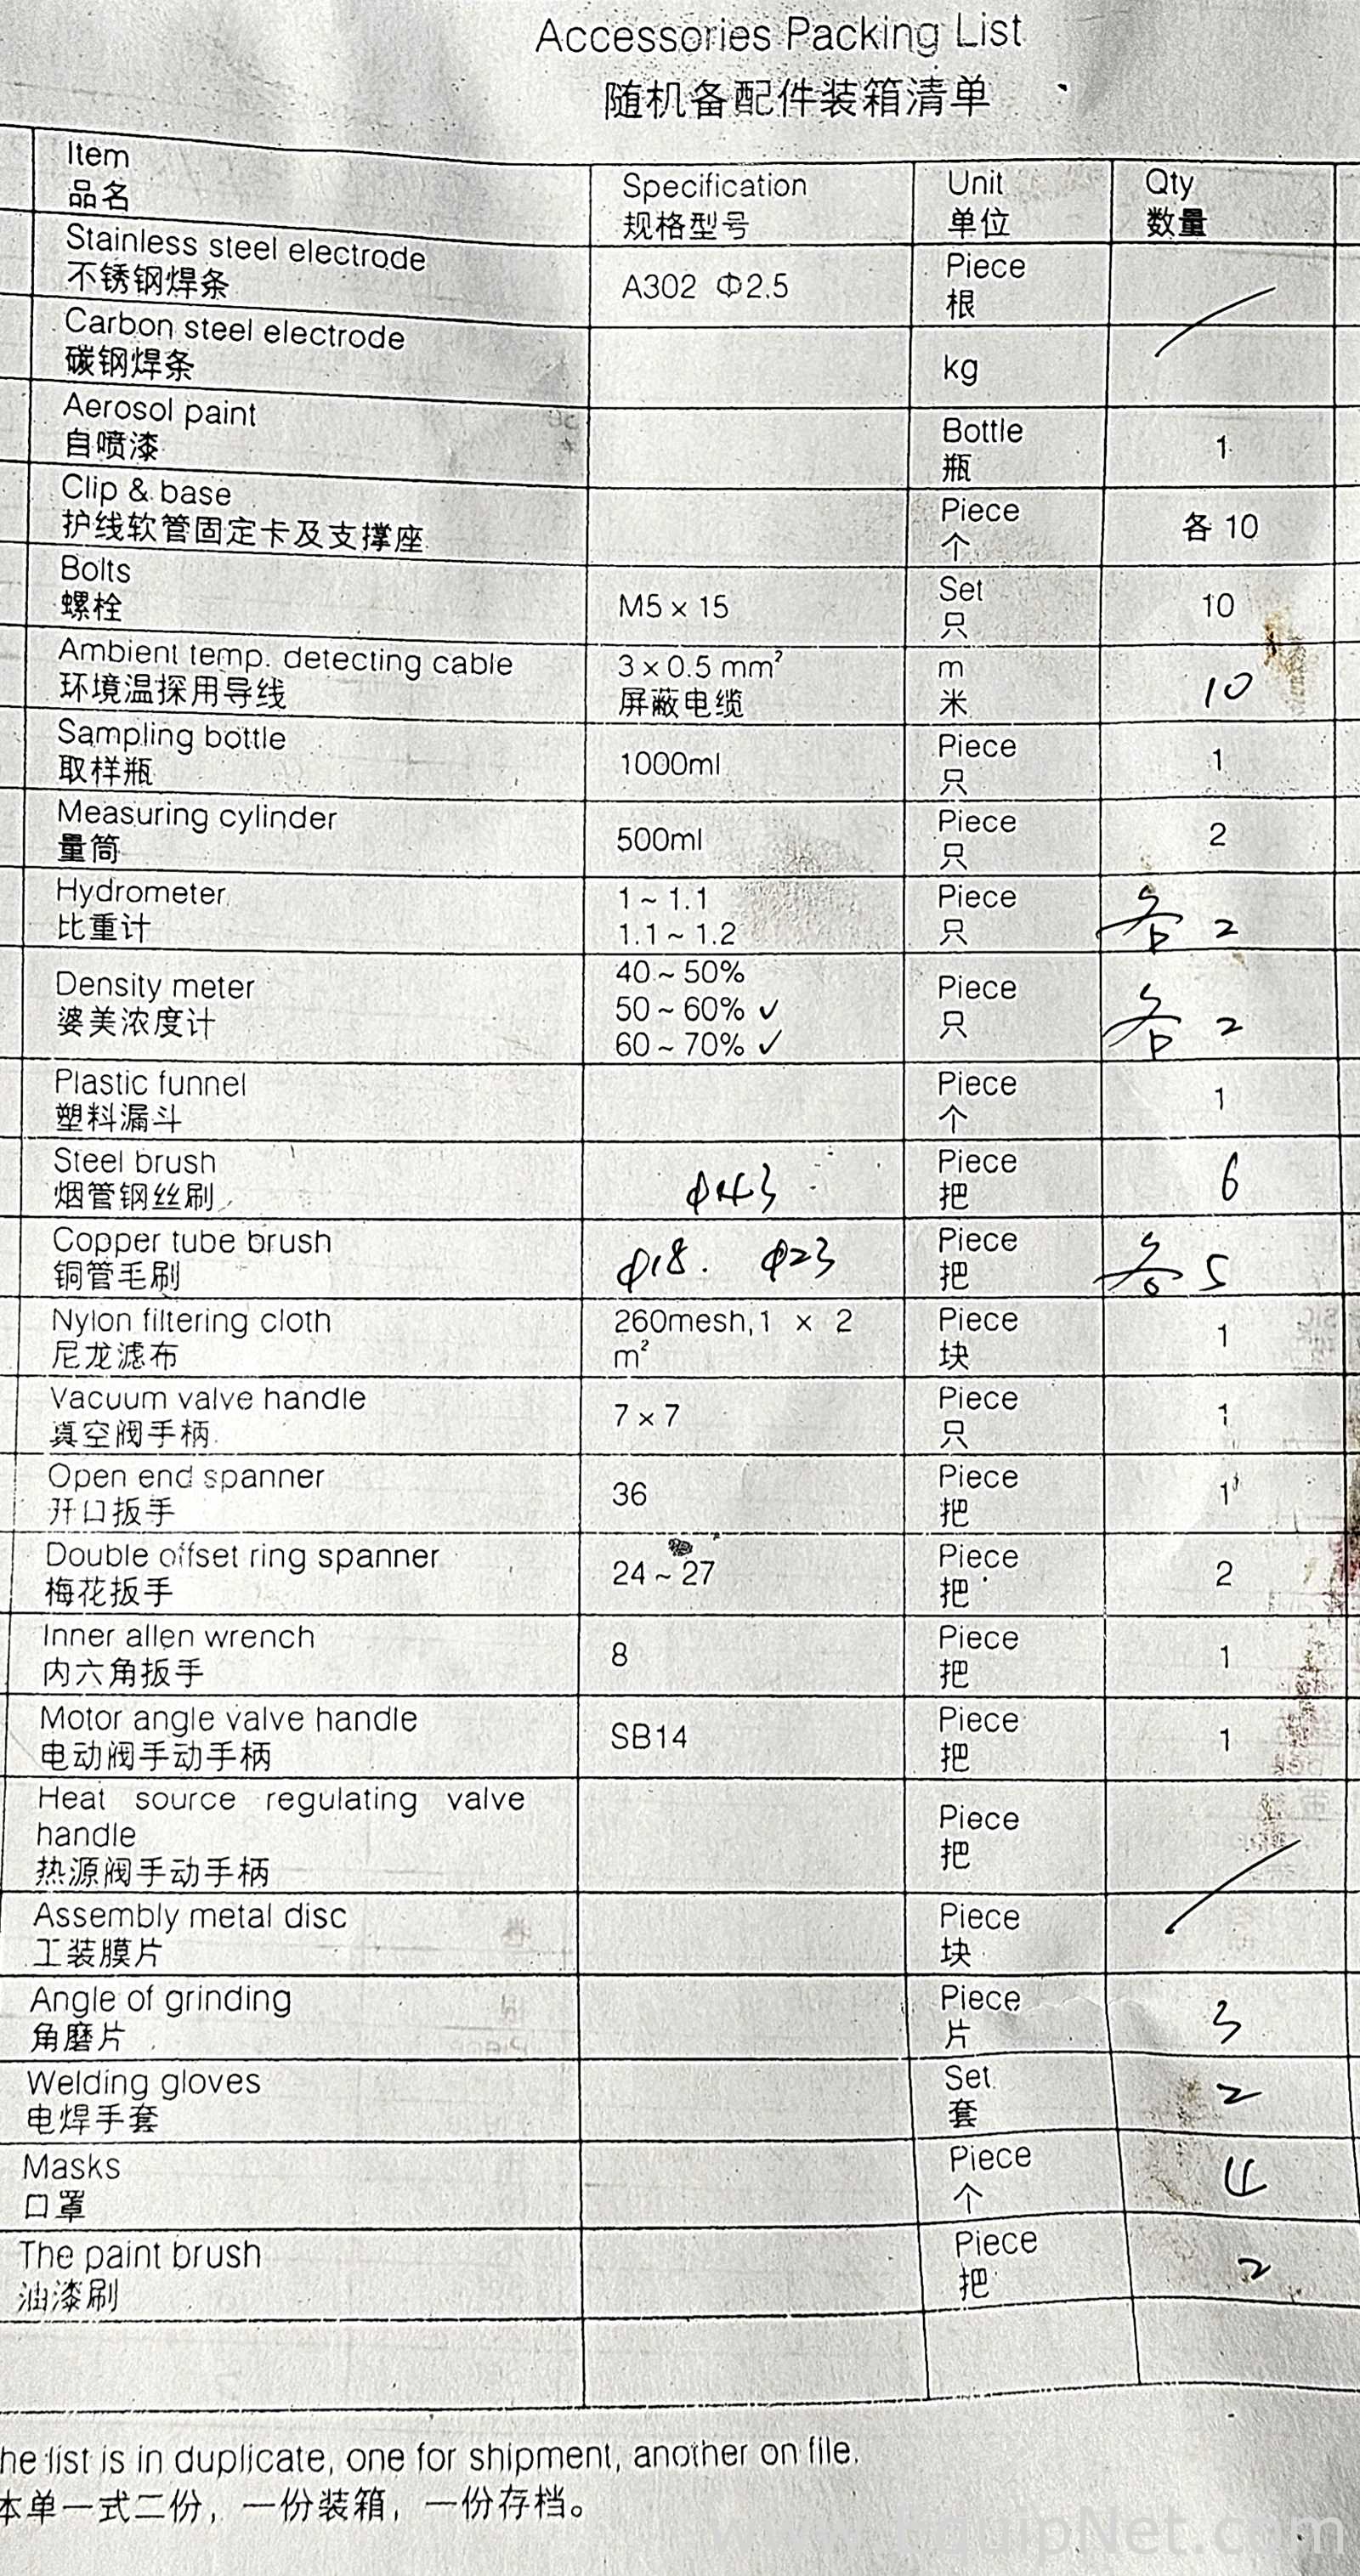 Accessories Packing List
随机备配件装箱清单
Item
品名
Specification
规格型号
Unit
单位
Qty
数量
Stainless steel electrode
不锈钢焊条
A302 Φ2.5
Piece
根
Carbon steel electrode
碳钢焊条
kg
Aerosol paint
自喷漆
Bottle
瓶
1
Clip & base
护线软管固定卡及支撑座
Piece
个
各 10
Bolts
螺栓
M5 x 15
Set
只
10
Ambient temp. detecting cable
环境温探用导线
3 x 0.5 mm²
屏蔽电缆
m
米
10
Sampling bottle
取样瓶
1000ml
Piece
只
1
Measuring cylinder
量筒
500ml
Piece
只
2
Hydrometer
比重计
1 ~ 1.1
1.1 ~ 1.2
Piece
只
各 2
Density meter
婆美浓度计
40 ~ 50%
50 ~ 60% ✓
60 ~ 70% ✓
Piece
只
各 2
Plastic funnel
塑料漏斗
Piece
个
1
Steel brush
烟管钢丝刷
φ43
Piece
把
6
Copper tube brush
铜管毛刷
φ18. φ23
Piece
把
各 5
Nylon filtering cloth
尼龙滤布
260mesh,1 x 2
m²
Piece
块
1
Vacuum valve handle
真空阀手柄
7 x 7
Piece
只
1
Open end spanner
开口扳手
36
Piece
把
1
Double offset ring spanner
梅花扳手
24 ~ 27
Piece
把
2
Inner allen wrench
内六角扳手
8
Piece
把
1
Motor angle valve handle
电动阀手动手柄
SB14
Piece
把
1
Heat source regulating valve
handle
热源阀手动手柄
Piece
把
Assembly metal disc
工装膜片
Piece
块
Angle of grinding
角磨片
Piece
片
3
Welding gloves
电焊手套
Set
套
2
Masks
口罩
Piece
个
4
The paint brush
油漆刷
Piece
把
2
he list is in duplicate, one for shipment, another on file.
本单一式二份，一份装箱，一份存档。
www.EquipNet.com